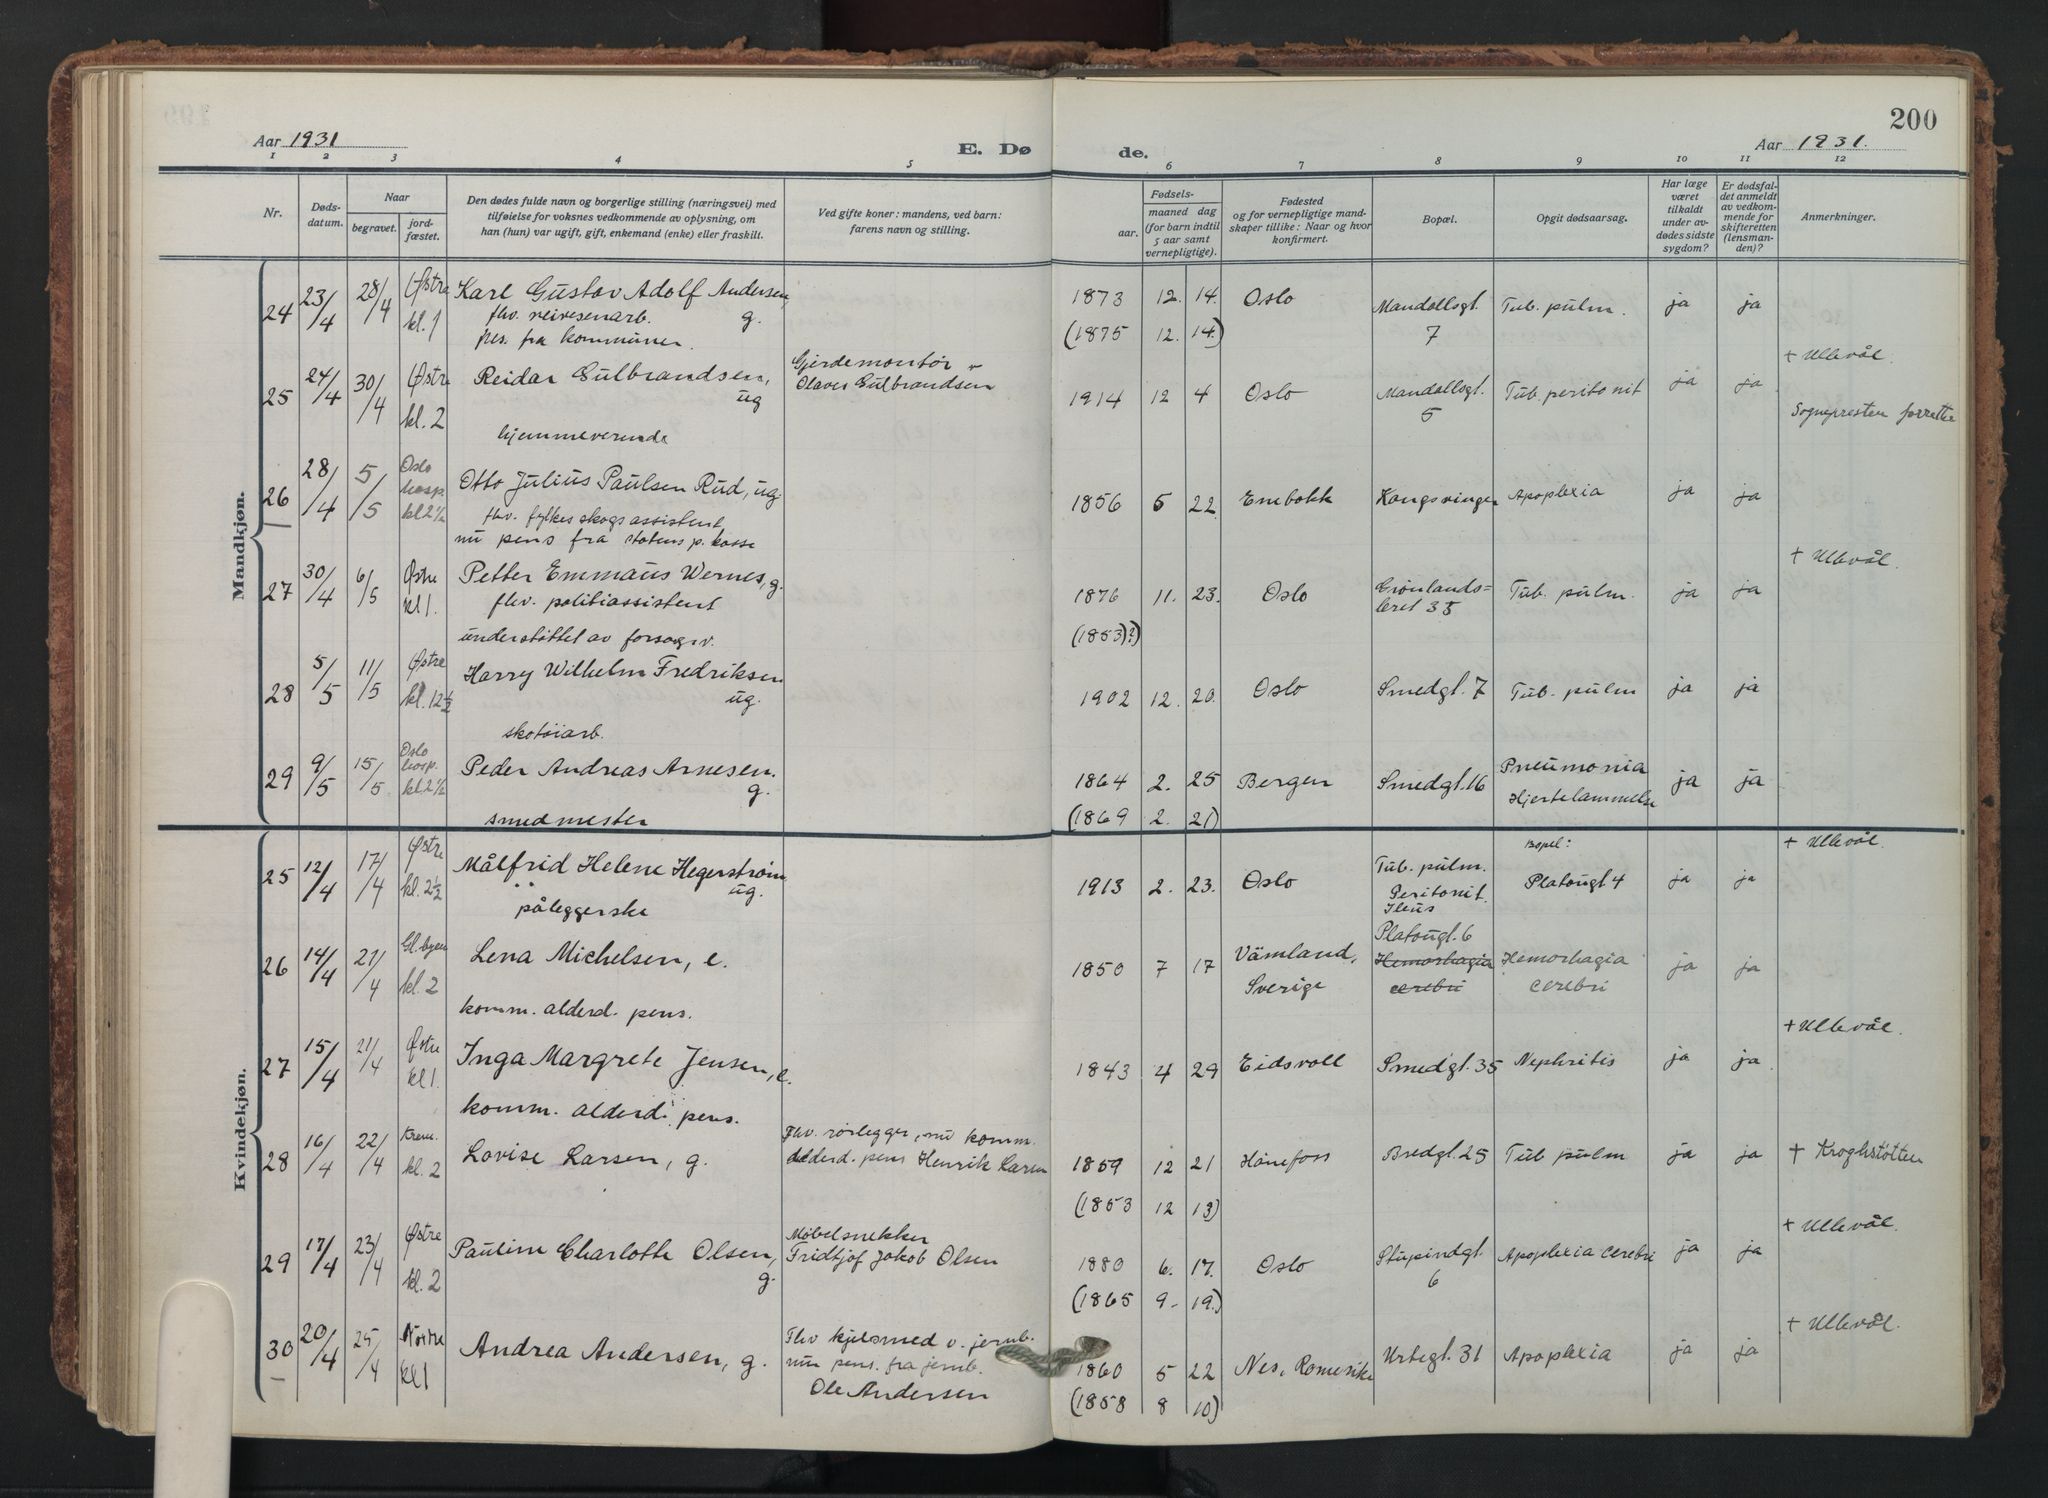 200
Aar 1931
E. Dø
de.
Aar 1931.
1 2 3 4 5 6 7 8 9 10 11 12
Nr.
Døds-
datum.
Naar
begravet.
jord-
fæstet.
Den dødes fulde navn og borgerlige stilling (næringsvei) med
tilføielse for voksnes vedkommende av oplysning, om
han (hun) var ugift, gift, enkemand (enke) eller fraskilt.
Ved gifte koner: mandens, ved barn:
farens navn og stilling.
Fødsels-
aar.
maaned dag
(for barn indtil
5 aar samt
vernepligtige).
Fødested
og for vernepligtige mand-
skaper tillike: Naar og hvor
konfirmert.
Bopæl.
Opgit dødsaarsag.
Har læge
været
tilkaldt
under av-
dødes sidste
sygdom?
Er dødsfal-
det anmeldt
av vedkom-
mende for
skifteretten
(lensman-
den)?
Anmerkninger.
Mandkjøn.
24 23/4 28/4 Østre kl. 1 Karl Gustav Adolf Andersen, g. 1873 12. 14. Oslo Mandallsgt. 7 Tub. pulm. ja ja
fhv. reivesenarb.
pens. fra kommunen. (1875 12. 14.)
+ Ullevål.
25 24/4 30/4 Østre kl. 2 Reidar Gulbrandsen, ug Gjerdemontør Olaves Gulbrandsen 1914 12 4 Oslo Mandallsgt. 5 Tub. peritonit ja ja
hjemmeværende
Sognepresten forrettet
26 28/4 5/5 Oslo hosp. kl 2 1/2 Otto Julius Paulsen Rud, ug. 1856 5 22. Enebakk Kongsvinger Apoplexia ja ja
fhv. fylkesskogsassistent
nu pens fra statens p. kasse
+ Ullevål.
27 30/4 6/5 Østre kl 1. Petter Emmaus Wernes, g. 1876 11. 23. Oslo Grønlands= leret 35 Tub. pulm. ja ja
fhv. politiassistent
understøttet av forsorgsv. (1853)?)
28 5/5 11/5 Østre kl. 12 1/2 Harry Wilhelm Fredriksen ug. 1902 12. 20. Oslo Smedgt. 7 Tub. pulm ja ja
skotøiarb.
29 9/5 15/5 Oslo hosp. kl 2 1/2 Peder Andreas Arnesen. g. 1864 2. 25 Bergen Smedgt. 16 Pneumonia Hjertelammelse ja ja
smedmester (1869 2. 21)
Kvindekjøn.
Bopel:
+ Ullevål.
25 12/4 17/4 Østre kl. 2 1/2 Målfrid Helene Hegerstrøm ug. 1913 2. 23. Oslo Tub. pulm. Peritonit. Ileus Platougt 4 ja ja
påleggerske
26 14/4 21/4 Gl. byen kl. 2 Lena Michelsen, e. 1850 7 17 Vämland, Sverige Platougt. 6 Hemorhagia cerebri Hemorhagia cerebri ja ja
komm. alderd. pens.
+ Ullevål.
27 15/4 21/4 Østre kl 1. Inga Margrete Jensen, e. 1843 4 29 Eidsvoll Smedgt. 35 Nephritis ja ja
komm. alderd. pens.
28 16/4 22/4 Krem. kl. 2 Lovise Larsen, g. Fhv. rørlegger, nu komm. alderd. pens Henrik Larsen 1859 12 21 Hønefoss Bredgt. 25 Tub pulm ja ja + Kroghstøtten
(1853 12 13)
+ Ullevål.
29 17/4 23/4 Østre kl. 2 Pauline Charlotte Olsen, g. Møbelsnekker Fridtjof Jakob Olsen 1880 6. 17. Oslo Stupindgt. 6 Apoplexia cerebri ja ja
(1865 9. 19.)
+ Ullevål.
30 20/4 25/4 Nordre kl 1 Andrea Andersen, g. Fhv kjelsmed v. jernb. nu pens. fra jernb. Ole Andersen 1860 5 22 Nes, Romerike Urtegt. 31 Apoplexia ja ja
(1858 8 10)